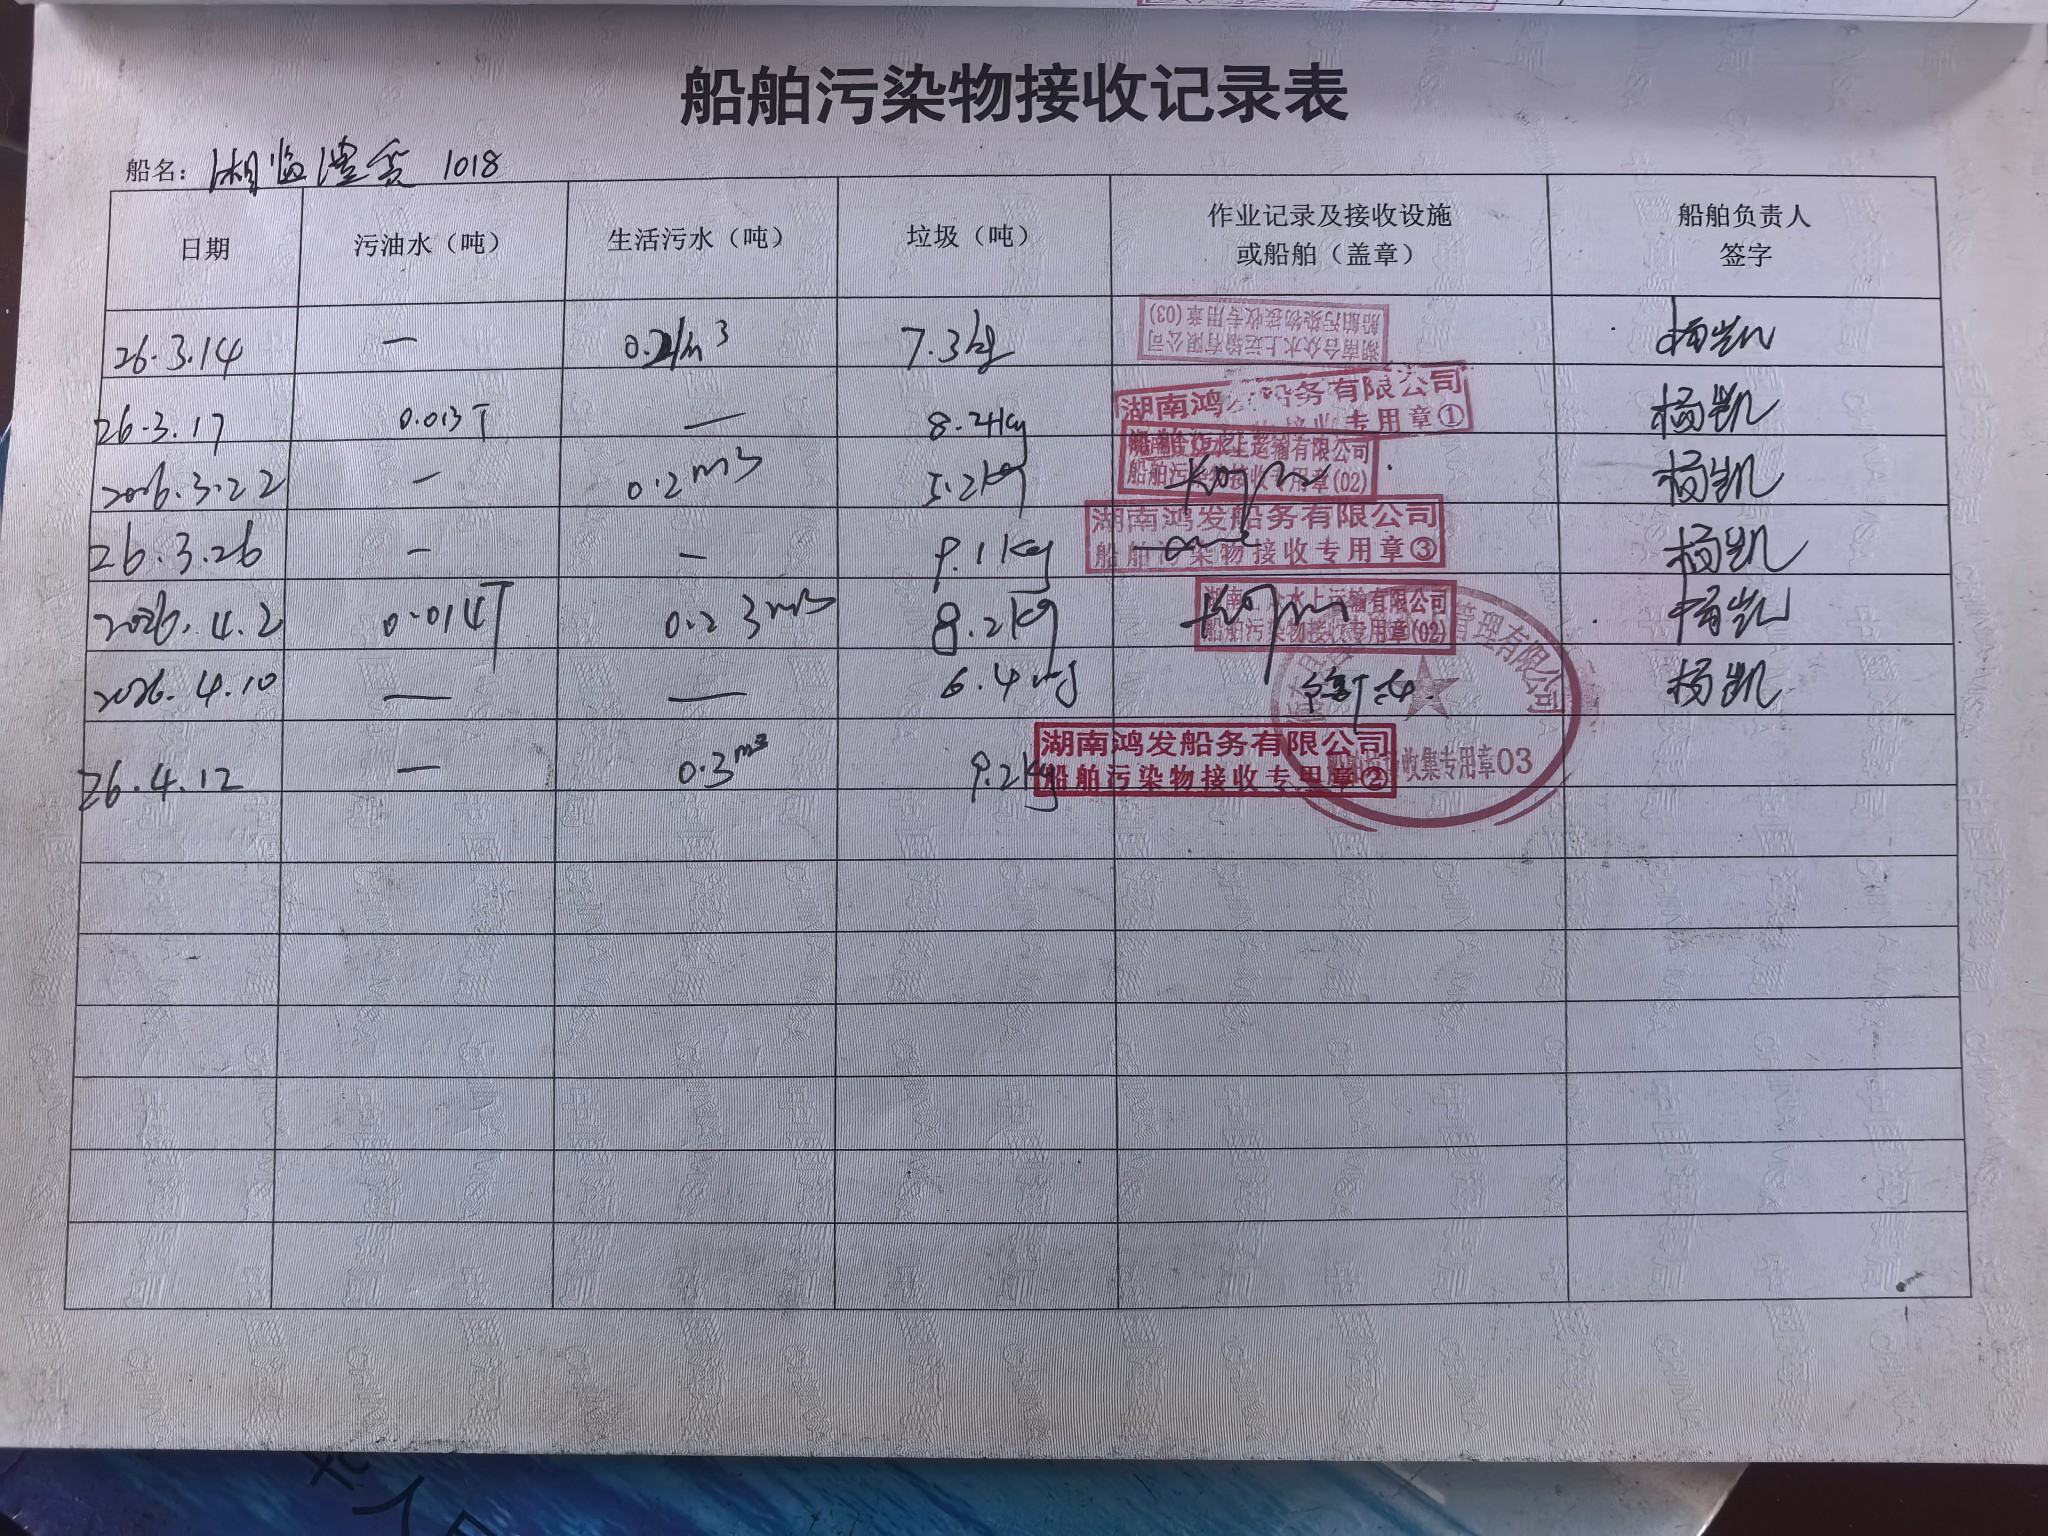 船舶污染物接收记录表
船名： 湘临澧货 1018
日期 污油水（吨） 生活污水（吨） 垃圾（吨） 作业记录及接收设施或船舶（盖章） 船舶负责人签字
26.3.14 — 7.3kg 湖南合众水上运输有限公司 船舶污染物接收专用章(03) 杨凯
26.3.17 0.013T — 8.2kg 湖南鸿 船务有限公司 接收专用章① 杨凯
2026.3.22 — 0.2m3 5.2kg 水上运输有限公司 船舶污染物接收专用章(02) 杨凯
26.3.26 — — 9.1kg 湖南鸿发船务有限公司 船舶污染物接收专用章③ 杨凯
2026.4.2 0.014T 0.23m3 8.2kg 湖南 水上运输有限公司 船舶污染物接收专用章(02) 杨凯
2026.4.10 — — 6.4kg 管理有限公司 收集专用章03 杨凯
26.4.12 — 0.3m3 9.2kg 湖南鸿发船务有限公司 船舶污染物接收专用章②